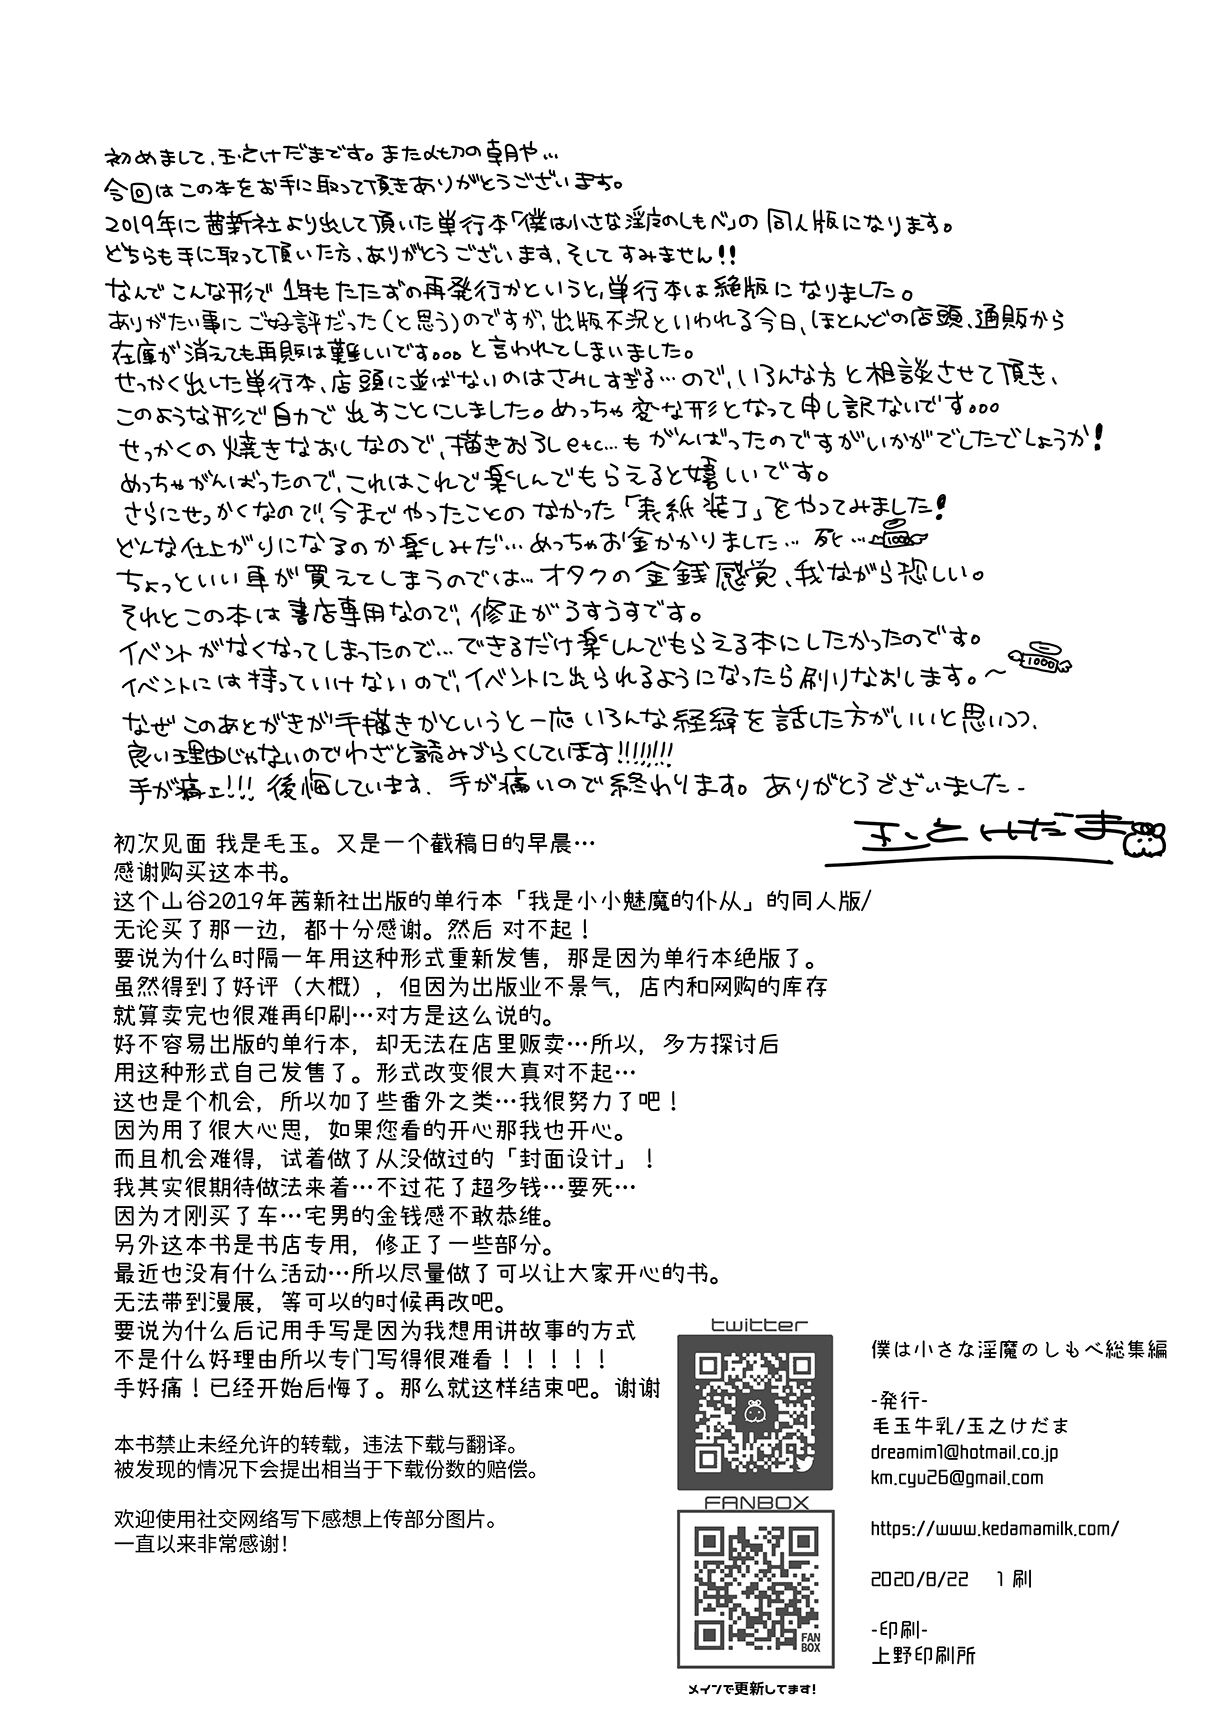 初めまして、玉之けだまです。また〆切の朝や…
今回はこの本をお手に取って頂きありがとうございます。
2019年に茜新社より出して頂いた単行本「僕は小さな淫魔のしもべ」の同人版になります。
どちらも手に取って頂いた方、ありがとうございます、そしてすみません!!
なんでこんな形で1年もたたずの再発行かというと、単行本は絶版になりました。
ありがたい事にご好評だった(と思う)のですが、出版不況といわれる今日、ほとんどの店頭、通販から
在庫が消えても再販は難しいです。。。と言われてしまいました。
せっかく出した単行本、店頭に並ばないのはさみしすぎる…ので、いろんな方と相談させて頂き、
このような形で自力で出すことにしました。めっちゃ変な形となって申し訳ないです。。。
せっかくの焼きなおしなので、描きおろしetc…もがんばったのですがいかがでしたでしょうか!
めっちゃがんばったので、これはこれで楽しんでもらえると嬉しいです。
さらにせっかくなので、今までやったことのなかった「表紙装丁」をやってみました!
どんな仕上がりになるのか楽しみだ…めっちゃお金かかりました…死…
ちょっといい車が買えてしまうのでは…オタクの金銭感覚、我ながら恐しい。
それとこの本は書店専用なので、修正がうすうすです。
イベントがなくなってしまったので…できるだけ楽しんでもらえる本にしたかったのです。
1000
イベントには持っていけないので、イベントに出られるようになったら刷りなおします。〜
なぜこのあとがきが手描きかというと一応いろんな経緯を話した方がいいと思いつつ、
良い理由じゃないのでわざと読みづらくしています!!!!!!!!
手が痛ェ!!!後悔しています、手が痛いので終わります。ありがとうございました-
玉之けだま
初次见面 我是毛玉。又是一个截稿日的早晨…
感谢购买这本书。
这个山谷2019年茜新社出版的单行本「我是小小魅魔的仆从」的同人版/
无论买了那一边，都十分感谢。然后 对不起！
要说为什么时隔一年用这种形式重新发售，那是因为单行本绝版了。
虽然得到了好评（大概），但因为出版业不景气，店内和网购的库存
就算卖完也很难再印刷…对方是这么说的。
好不容易出版的单行本，却无法在店里贩卖…所以，多方探讨后
用这种形式自己发售了。形式改变很大真对不起…
这也是个机会，所以加了些番外之类…我很努力了吧！
因为用了很大心思，如果您看的开心那我也开心。
而且机会难得，试着做了从没做过的「封面设计」！
我其实很期待做法来着…不过花了超多钱…要死…
因为才刚买了车…宅男的金钱感不敢恭维。
另外这本书是书店专用，修正了一些部分。
最近也没有什么活动…所以尽量做了可以让大家开心的书。
无法带到漫展，等可以的时候再改吧。
要说为什么后记用手写是因为我想用讲故事的方式
不是什么好理由所以专门写得很难看！！！！！
手好痛！已经开始后悔了。那么就这样结束吧。谢谢
本书禁止未经允许的转载，违法下载与翻译。
被发现的情况下会提出相当于下载份数的赔偿。
欢迎使用社交网络写下感想上传部分图片。
一直以来非常感谢!
twitter
FANBOX
FAN
BOX
メインで更新してます!
僕は小さな淫魔のしもべ総集編
-発行-
毛玉牛乳/玉之けだま
dreamim1@hotmail.co.jp
km.cyu26@gmail.com
https://www.kedamamilk.com/
2020/8/22 1刷
-印刷-
上野印刷所